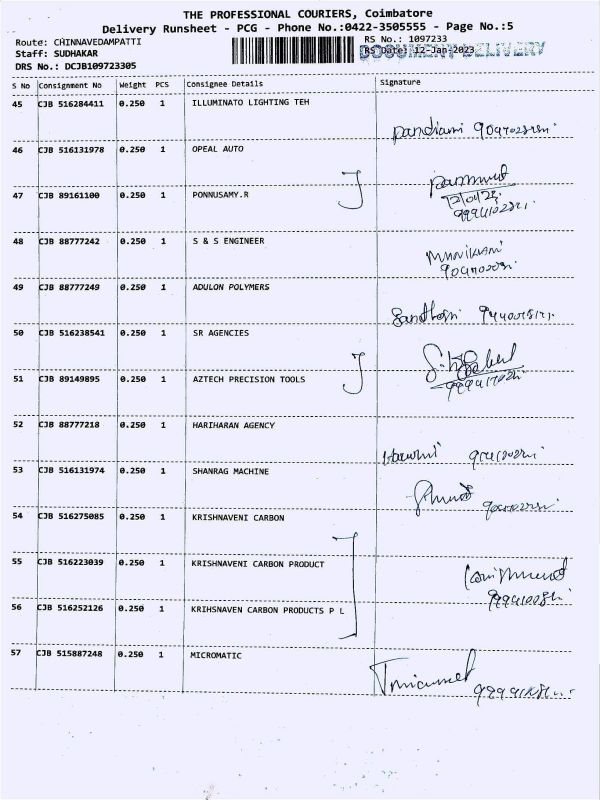 THE PROFESSIONAL COURIERS, Coimbatore
Delivery Runsheet - PCG - Phone No.:0422-3505555 - Page No.:5
Route: CHINNAVEDAMPATTI
RS No.: 1097233
Staff: SUDHAKAR
RS Date: 12-Jan-2023
DOCUMENT DELIVERY
DRS No.: DCJB109723305
S No Consignment No Weight PCS Consignee Details Signature
45 CJB 516284411 0.250 1 ILLUMINATO LIGHTING TEH
46 CJB 516131978 0.250 1 OPEAL AUTO
47 CJB 89161100 0.250 1 PONNUSAMY.R
48 CJB 88777242 0.250 1 S & S ENGINEER
49 CJB 88777249 0.250 1 ADULON POLYMERS
50 CJB 516238541 0.250 1 SR AGENCIES
51 CJB 89149895 0.250 1 AZTECH PRECISION TOOLS
52 CJB 88777218 0.250 1 HARIHARAN AGENCY
53 CJB 516131974 0.250 1 SHANRAG MACHINE
54 CJB 516275085 0.250 1 KRISHNAVENI CARBON
55 CJB 516223039 0.250 1 KRISHNAVENI CARBON PRODUCT
56 CJB 516252126 0.250 1 KRIHSNAVEN CARBON PRODUCTS P L
57 CJB 515887248 0.250 1 MICROMATIC